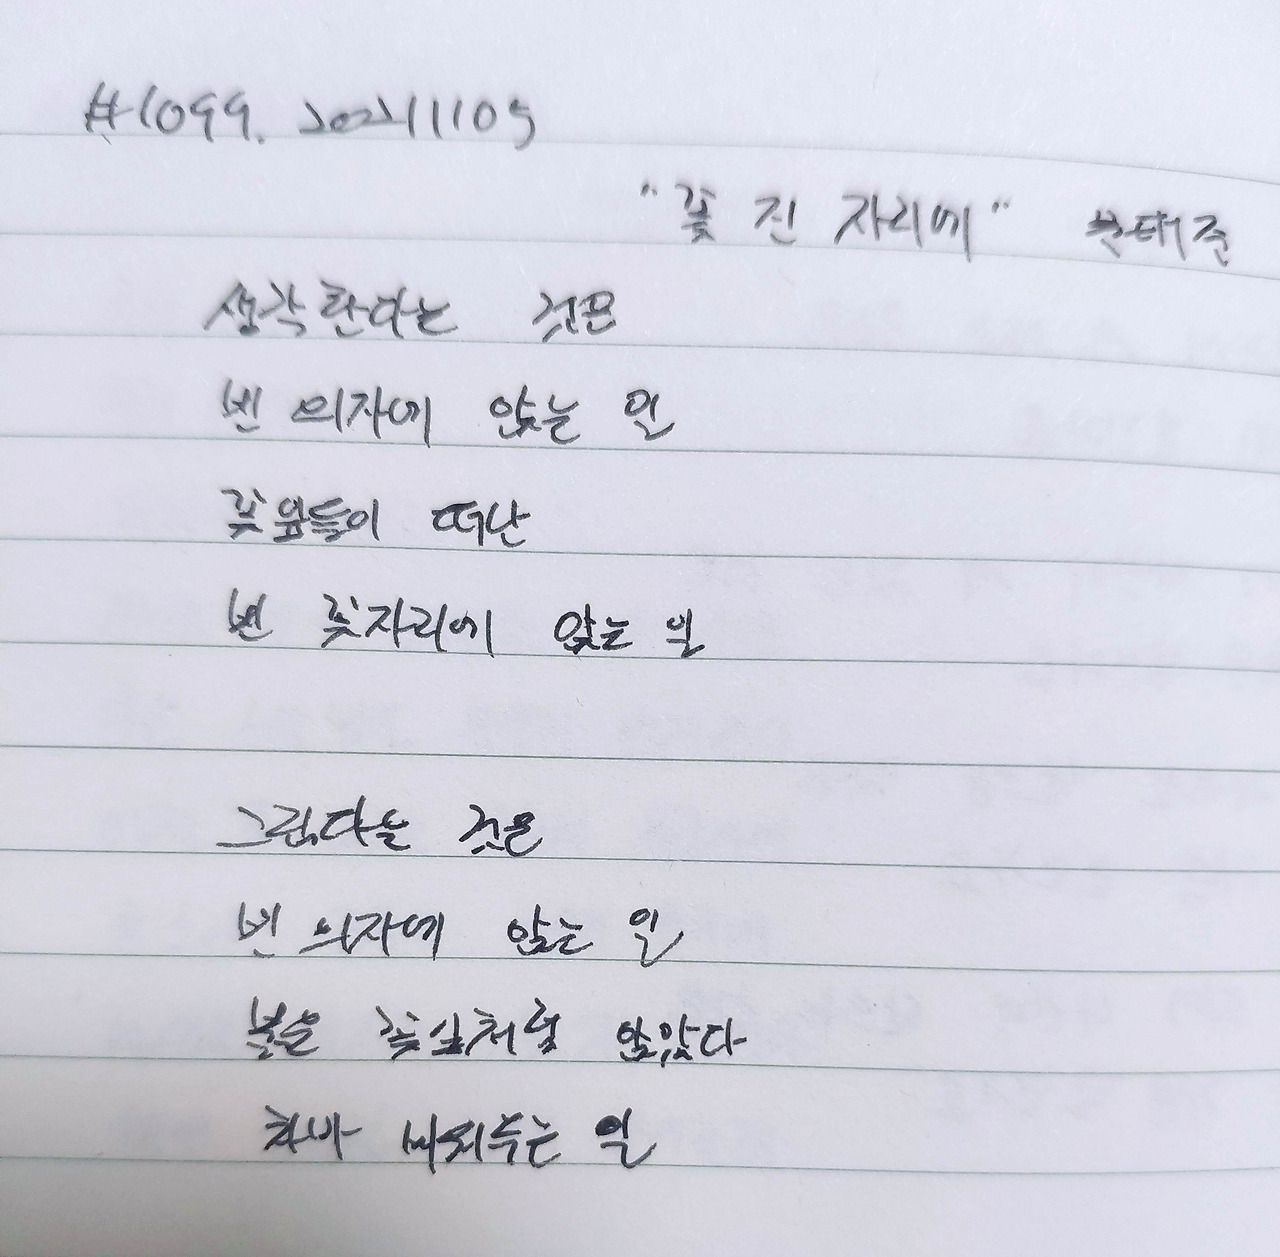 #1099. 20211105
"꽃 진 자리에" 문태준
생각한다는 것은
빈 의자에 앉는 일
꽃잎들이 떠난
빈 꽃자리에 앉는 일
그립다는 것은
빈 의자에 앉는 일
붉은 꽃잎처럼 앉았다
차마 비워두는 일